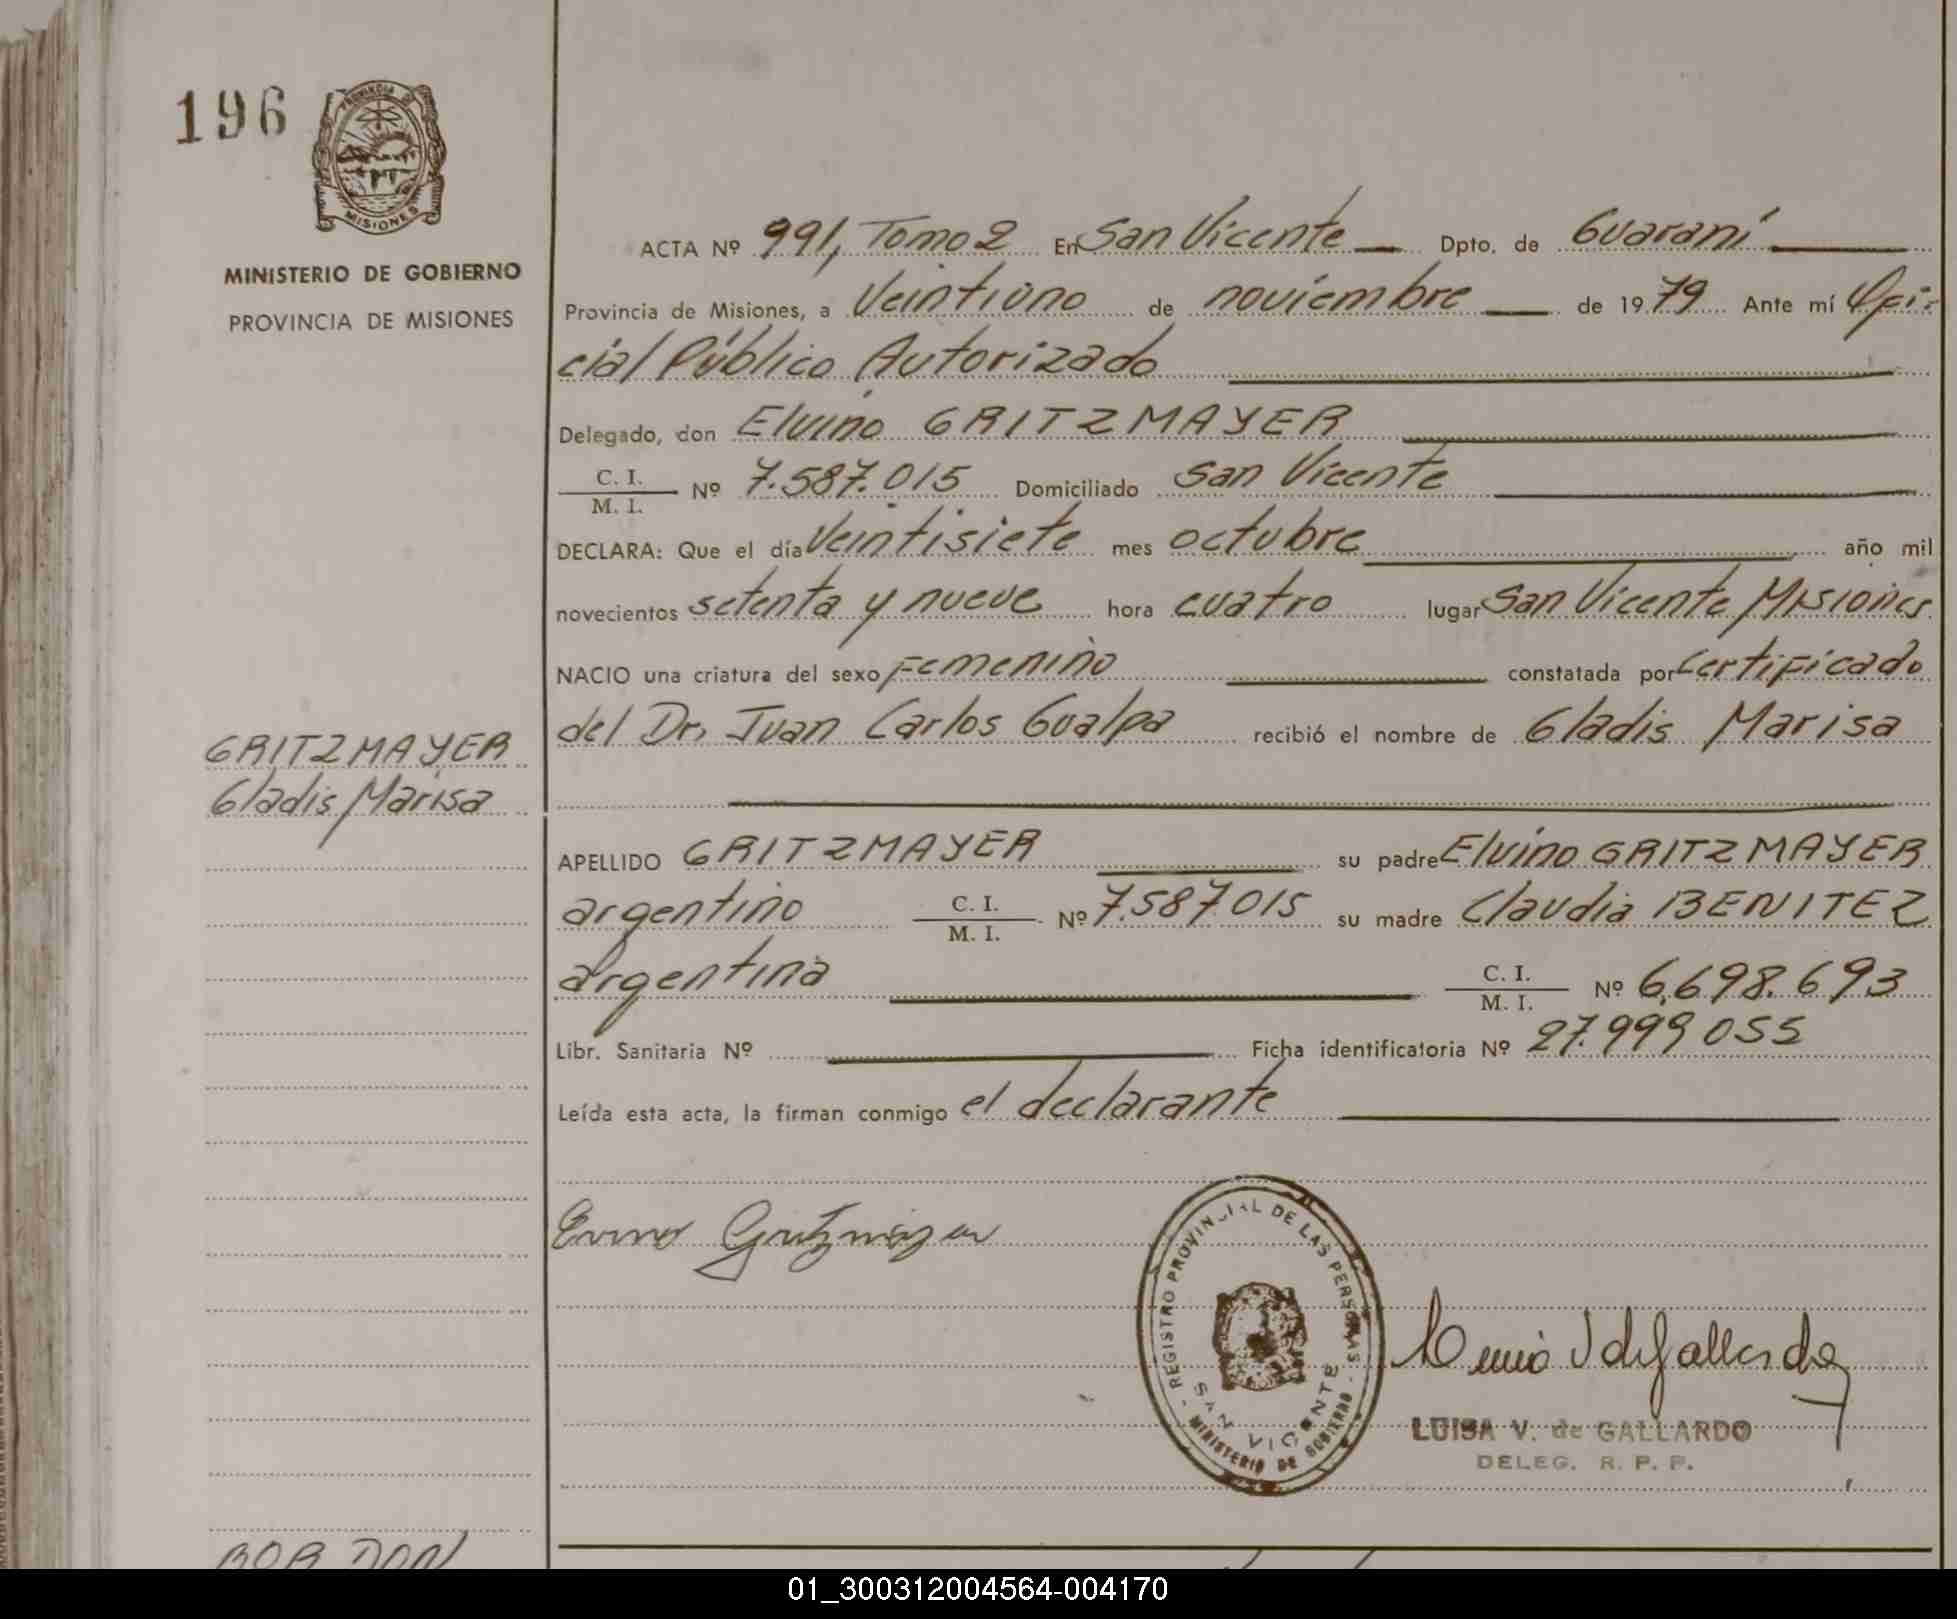 196
PROVINCIA DE
MISIONES
MINISTERIO DE GOBIERNO
PROVINCIA DE MISIONES
ACTA Nº 991, Tomo 2 En San Vicente Dpto. de Guaraní
Provincia de Misiones, a Veintiuno de noviembre de 1979 Ante mí Ofi-
cial Público Autorizado
Delegado, don Elvino GRITZMAYER
C. I.
M. I. Nº 7.587.015 Domiciliado San Vicente
DECLARA: Que el día Veintisiete mes octubre año mil
novecientos setenta y nueve hora cuatro lugar San Vicente Misiones
NACIO una criatura del sexo Femenino constatada por Certificado
del Dr. Juan Carlos Gualpa recibió el nombre de Gladis Marisa
GRITZMAYER
Gladis Marisa
APELLIDO GRITZMAYER su padre Elvino GRITZMAYER
argentino C. I.
M. I. Nº 7.587.015 su madre Claudia BENITEZ
argentina C. I.
M. I. Nº 6.698.693
Libr. Sanitaria Nº Ficha identificatoria Nº 27.999055
Leída esta acta, la firman conmigo el declarante
Gritzmayer
REGISTRO PROVINCIAL DE LAS PERSONAS
SAN VICENTE
MINISTERIO DE GOBIERNO
LUISA V. de GALLARDO
DELEG. R. P. P.
BORDON
01_300312004564-004170